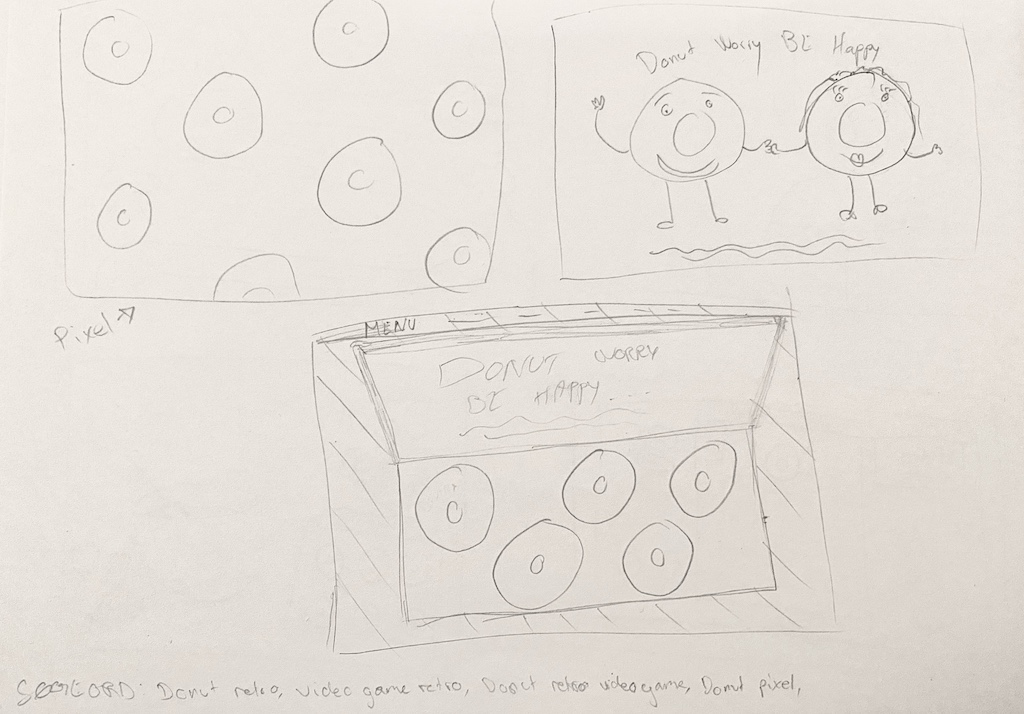 Donut Worry BE Happy
Pixel
MENU
DONUT WORRY
BE HAPPY...
Donut retro, video game retro, Donut retro videogame, Donut pixel,